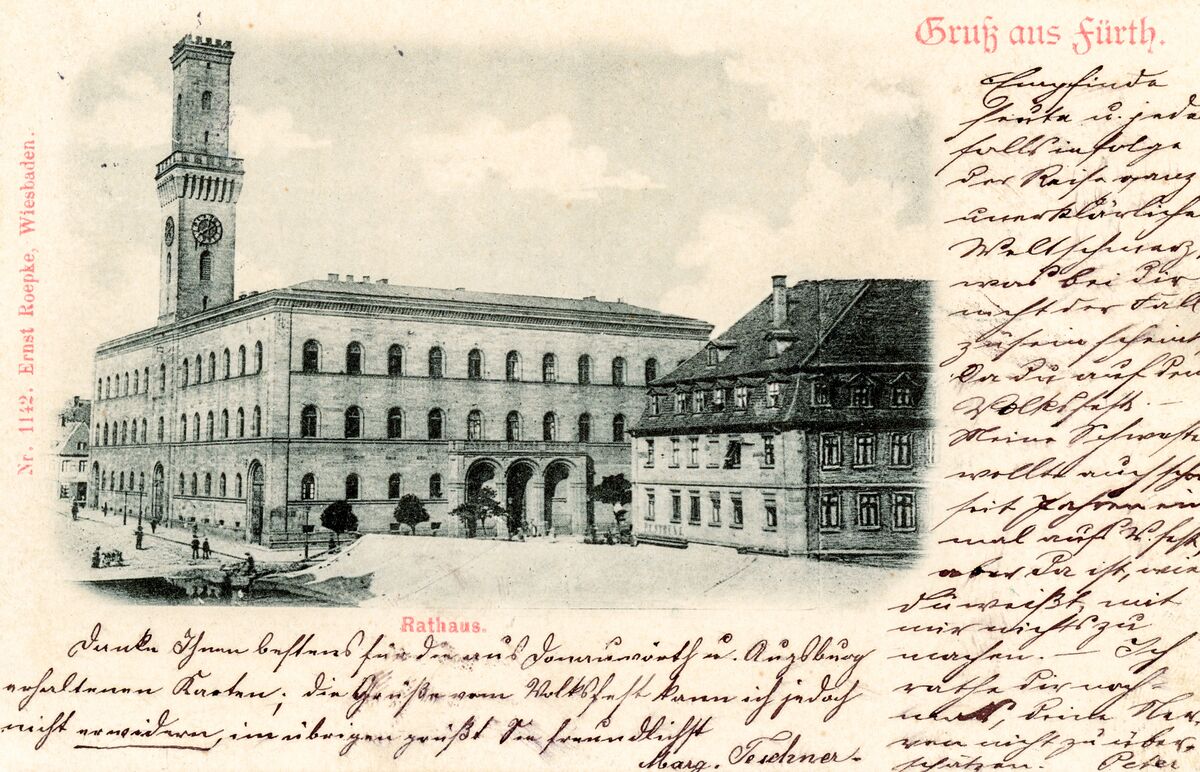 Gruß aus Fürth.
Nr. 1142. Ernst Roepke, Wiesbaden.
Rathaus.
Empfinde
heute u. jeden
falls infolge
der Reise ganz
unerklärliche
Weltschmerz,
was bei dir
nicht der Fall
zu sein scheint
da du auf dem
Volksfest. –
Meine Schwester
wollte auch schon
seit Jahren ein
mal aufs V.fest,
aber da ist, wie
du weißt, mit
mir nichts zu
machen. – Ich
rathe dir noch-
mals, deine Ner
ven nicht zu über-
schätzen. Peter
Danke Ihnen bestens für die aus Donauwörth u. Augsburg
erhaltenen Karten; die Grüße vom Volksfest kann ich jedoch
nicht erwidern, im übrigen grüßt Sie freundlichst
Marg. Teschner.